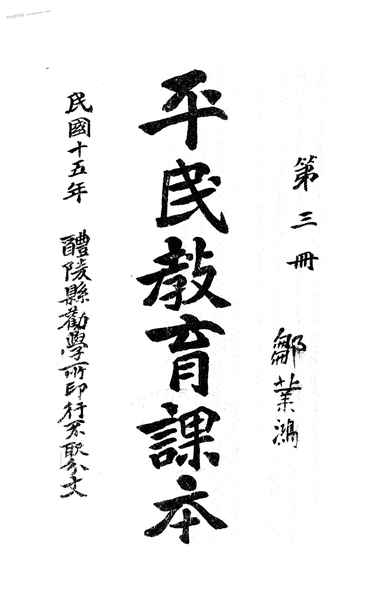 第三冊
鄒業鴻
平民教育課本
民國十五年 醴陵縣勸學所印行不取分文